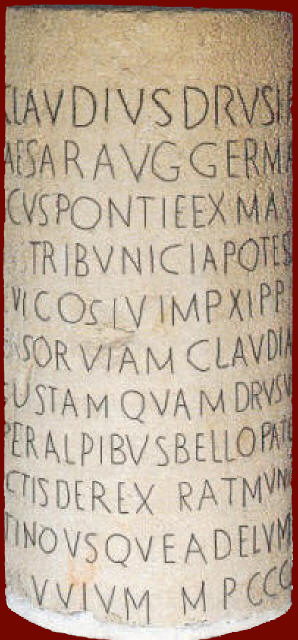 CLAVDIVSDRVSIF
AESARAVGGERMA
CVSPONTIFEXMAX
TRIBVNICIAPOTES
VICOSIVIMPXIPP
SORVIAMCLAVDIA
GUSTAMQVAMDRVSV
PERALPIBVSBELLOPATE
CTISDEREXRATMVNI
TINOVSQVEADFLVM
VVIVM MPCCC